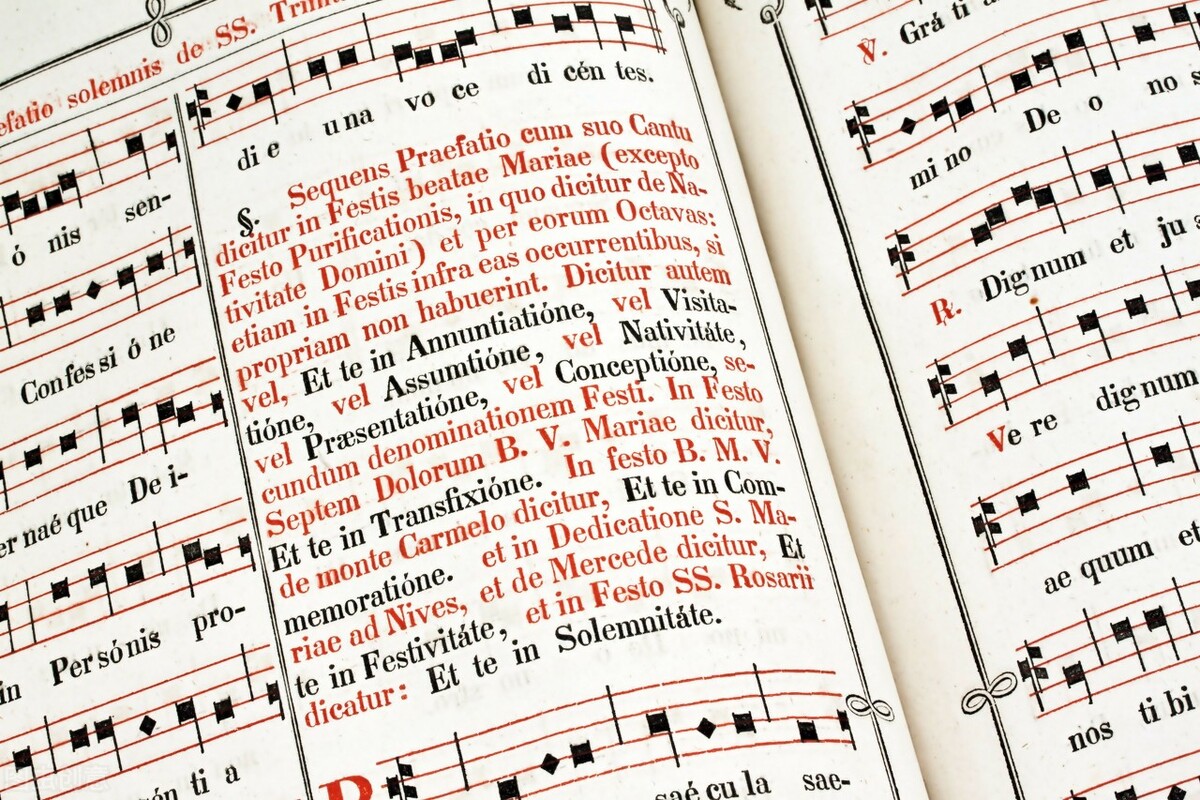 solemnis de SS.
ó nis sen-
Con fes si ó ne
naé que De i-
in Per só nis pro-
ti a
di e u na vo ce di cén tes.
§. Sequens Praefatio cum suo Cantu
dicitur in Festis beatae Mariae (excepto
Festo Purificationis, in quo dicitur de Na-
tivitate Domini) et per eorum Octavas:
etiam in Festis infra eas occurrentibus, si
propriam non habuerint. Dicitur autem
vel, Et te in Annuntiatióne, vel Visita-
tióne, vel Assumtióne, vel Nativitáte,
vel Præsentatióne, vel Conceptióne, se-
cundum denominationem Festi. In Festo
Septem Dolorum B. V. Mariae dicitur,
Et te in Transfixióne. In festo B. M. V.
de monte Carmelo dicitur, Et te in Com-
memoratióne. et in Dedicatione S. Ma-
riae ad Nives, et de Mercede dicitur, Et
te in Festivitáte, et in Festo SS. Rosarii
dicatur: Et te in Solemnitáte.
saé cu la sae-
℣. Grá ti a
mi no De o no s
℟. Dig num et ju
Ve re dig num
ae quum et
nos ti bi